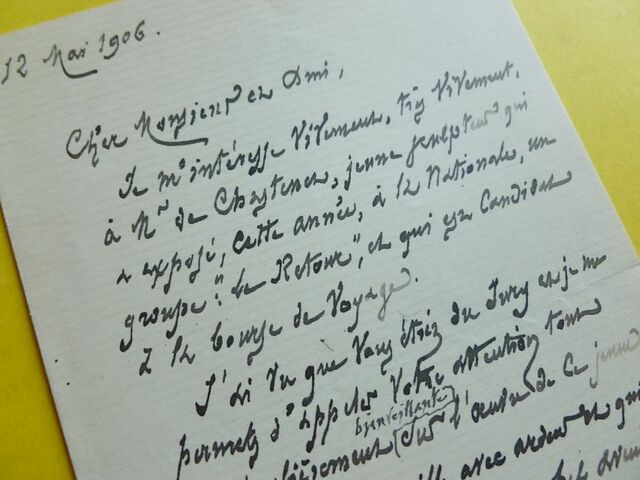 12 Mai 1906.
Cher Monsieur et Ami,
Je m'intéresse vivement, très vivement,
à Mr de Chastenet, jeune sculpteur qui
a exposé, cette année, à la Nationale, un
groupe: "Le Retour", et qui est Candidat
à la bourse de voyage.
J'ai vu que vous étiez du Jury et je me
permets d'appeler votre attention tout
bienveillante
sur l'œuvre de ce jeune
avec ardeur et qui